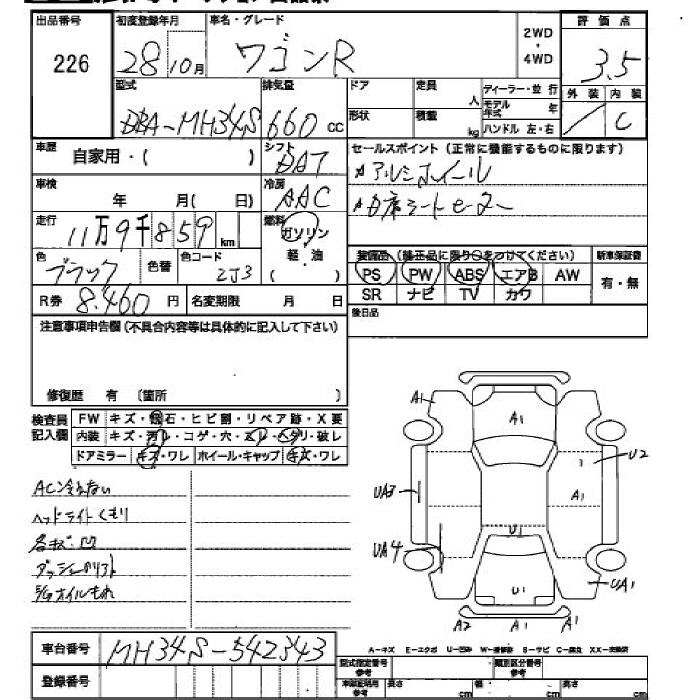 出品番号 初度登録年月 車名・グレード 2WD・4WD 評価点
226 28 10月 ワゴンR 3.5
型式 排気量 ドア 定員 人 ディーラー・並行 外装 内装
DBA-MH34S 660 cc 形状 積載 kg モデル年式 年 ハンドル 左・右 / C
車歴 自家用・( ) シフト DAT セールスポイント(正常に機能するものに限ります)
車検 年 月( 日) 冷房 AAC アルミホイール
走行 11万9千859km 燃料 ガソリン 軽・油 ( )
シートヒーター
色 ブラック 色替 色コード 2J3 装備品(純正品に限り○をつけてください) 新車保証書
PS PW ABS エアB AW 有・無
R券 8.460円 名変期限 月 日 SR ナビ TV カワ
注意事項申告欄(不具合内容等は具体的に記入して下さい) 後日品
修復歴 有 (箇所 )
検査員記入欄 FW キズ・飛石・ヒビ割・リペア跡・X要
内装 キズ・汚レ・コゲ・穴・スレ・ヘタリ・破レ
ドアミラー キズ・ワレ ホイール・キャップ キズ・ワレ
AC冷えない
ヘッドライトくもり
各キズ・凹
オイルもれ
A1 A1
U2
UA3 A1
U1
UA4
U1 UA1
A2 A1 A1
車台番号 MH34S-542343
A-キズ E-エクボ U-凹み W-補修跡 S-サビ C-腐食 XX-交換済
登録番号 型式指定番号 参考 類別区分番号 参考
長さ cm 幅 cm 高さ cm